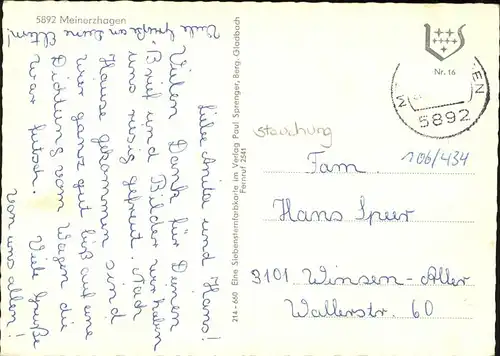 5892 Meinerzhagen
Viele Grüße an Deine Eltern!
Liebe Anita und Hans!
Vielen Dank für Deinen
Brief und Bilder wir haben
uns riesig gefreut. Nach
Hause gekommen sind
wir ganz gut bis auf eine
Dichtung vom Wagen die
war futsch. Viele Grüße
von uns allen!
214-660 Eine Siebensternfarbkarte im Verlag Paul Sprenger, Berg. Gladbach
Fernruf 2541
Nr. 16
5892
stauchung
106/434
Fam.
Hans Speer
3101 Winsen-Aller
Wallerstr. 60